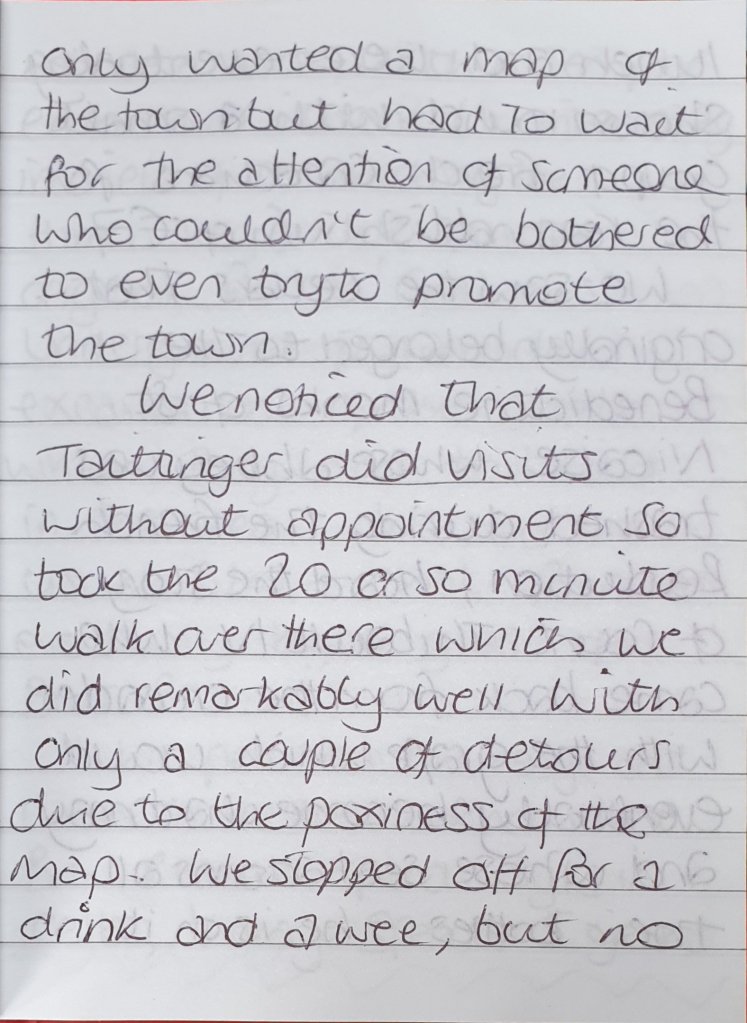 only wanted a map of
the town but had to wait
for the attention of someone
who couldn't be bothered
to even try to promote
the town.
We noticed that
Taittinger did visits
without appointment so
took the 20 or so minute
walk over there which we
did remarkably well with
only a couple of detours
due to the poxiness of the
map. We stopped off for a
drink and a wee, but no